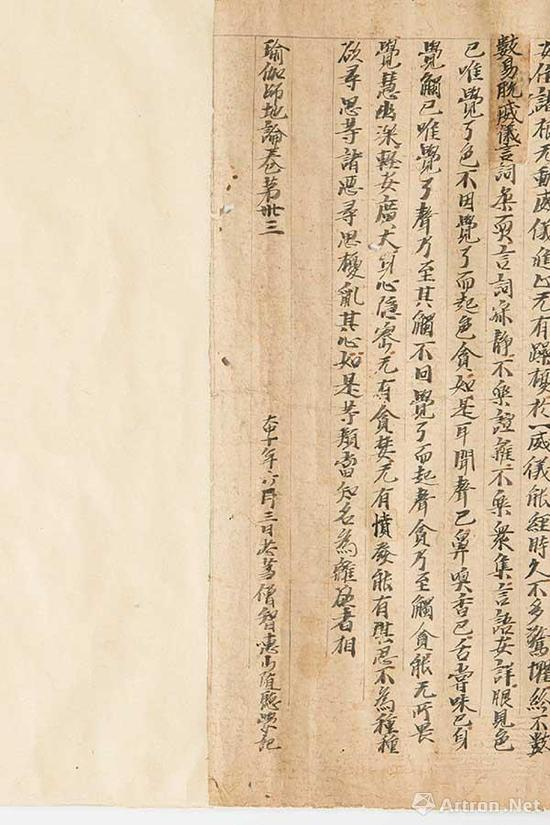 諸根无動威儀進止无有躁擾於一威儀能經時久不多驚懼終不數
數易脫威儀言詞柔耎言詞寂靜不樂諠雜不樂衆集言語安詳眼見色
已唯覺了色不因覺了而起色貪如是耳聞聲已鼻嗅香已舌嘗味已身
覺觸已唯覺了聲乃至其觸不因覺了而起聲貪乃至觸貪能无所畏
覺慧幽深輕安廣大身心隱密无有貪婪无有憤發能有堪忍不為種種
欲尋思等諸惡尋思擾亂其心如是等類當知名為離欲者相
瑜伽師地論卷第卅三
大中十年六月三日苾蒭僧智惠山隨聽學記
雅昌艺术网
Artron.Net